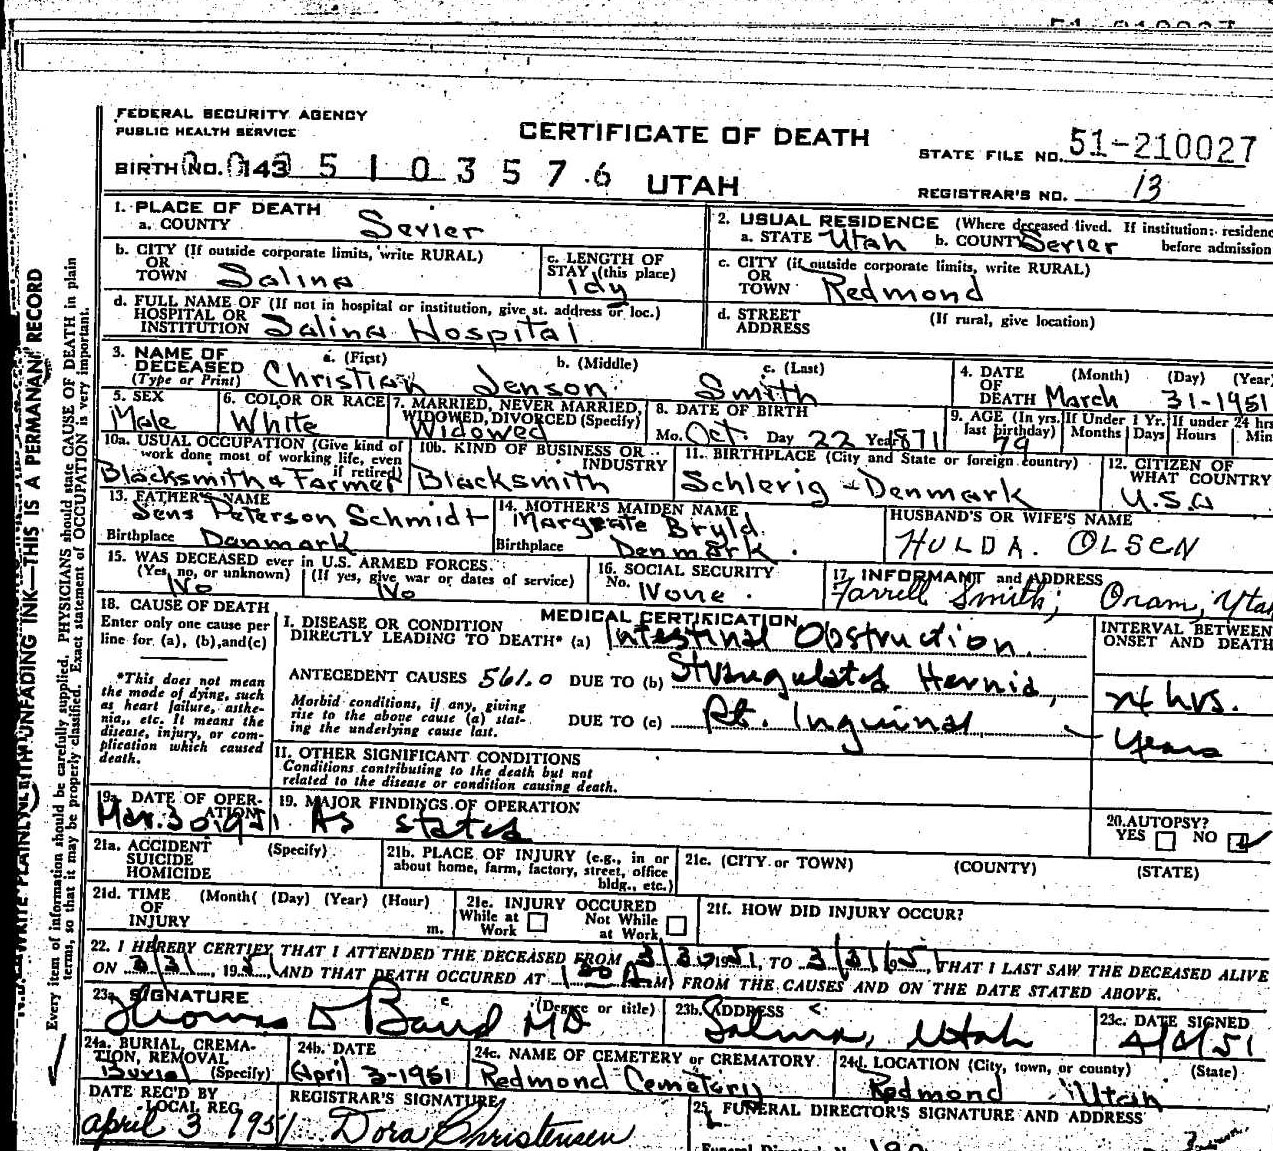 FEDERAL SECURITY AGENCY
PUBLIC HEALTH SERVICE
CERTIFICATE OF DEATH
STATE FILE NO. 51-210027
BIRTH NO. 143 5 1 0 3 5 7 6 UTAH
REGISTRAR'S NO. 13
1. PLACE OF DEATH
a. COUNTY Sevier
2. USUAL RESIDENCE (Where deceased lived. If institution: residence
a. STATE Utah b. COUNTY Sevier before admission
b. CITY (If outside corporate limits, write RURAL)
OR
TOWN Salina
c. LENGTH OF
STAY (this place)
1dy
c. CITY (if outside corporate limits, write RURAL)
OR
TOWN Redmond
d. FULL NAME OF (If not in hospital or institution, give st. address or loc.)
HOSPITAL OR
INSTITUTION Salina Hospital
d. STREET (If rural, give location)
ADDRESS
3. NAME OF a. (First) b. (Middle) c. (Last)
DECEASED
(Type or Print) Christian Jenson Smith
4. DATE (Month) (Day) (Year)
OF
DEATH March 31-1951
5. SEX
Male
6. COLOR OR RACE
White
7. MARRIED, NEVER MARRIED,
WIDOWED, DIVORCED (Specify)
Widowed
8. DATE OF BIRTH
Mo. Oct. Day 22 Year 1871
9. AGE (In yrs. last birthday) 79
If Under 1 Yr.
Months Days
If under 24 hrs
Hours Min
10a. USUAL OCCUPATION (Give kind of
work done most of working life, even
if retired)
Blacksmith & Farmer
10b. KIND OF BUSINESS OR
INDUSTRY
Blacksmith
11. BIRTHPLACE (City and State or foreign country)
Schlerig - Denmark
12. CITIZEN OF
WHAT COUNTRY
U.S.A
13. FATHER'S NAME
Jens Peterson Schmidt
Birthplace Danmark
14. MOTHER'S MAIDEN NAME
Margreate Bryld
Birthplace Denmark.
HUSBAND'S OR WIFE'S NAME
HULDA. OLSEN
15. WAS DECEASED ever in U.S. ARMED FORCES.
(Yes, no, or unknown) (If yes, give war or dates of service)
No No
16. SOCIAL SECURITY
No. None.
17. INFORMANT and ADDRESS
Farrell Smith; Orem, Utah
18. CAUSE OF DEATH
Enter only one cause per
line for (a), (b), and (c)
*This does not mean
the mode of dying, such
as heart failure, asthe-
nia, etc. It means the
disease, injury, or com-
plication which caused
death.
MEDICAL CERTIFICATION
I. DISEASE OR CONDITION
DIRECTLY LEADING TO DEATH* (a) Intestinal Obstruction
ANTECEDENT CAUSES 561.0 DUE TO (b) Strangulated Hernia,
Morbid conditions, if any, giving
rise to the above cause (a) stat-
ing the underlying cause last.
DUE TO (c) Rt. Inguinal
INTERVAL BETWEEN
ONSET AND DEATH
24 hrs.
Years
II. OTHER SIGNIFICANT CONDITIONS
Conditions contributing to the death but not
related to the disease or condition causing death.
19a. DATE OF OPER-
ATION
Mar. 30, 1951
19. MAJOR FINDINGS OF OPERATION
As stated
20. AUTOPSY?
YES NO
21a. ACCIDENT (Specify)
SUICIDE
HOMICIDE
21b. PLACE OF INJURY (e.g., in or
about home, farm, factory, street, office
bldg., etc.)
21c. (CITY or TOWN) (COUNTY) (STATE)
21d. TIME (Month( (Day) (Year) (Hour)
OF
INJURY m.
21e. INJURY OCCURED
While at Work Not While at Work
21f. HOW DID INJURY OCCUR?
22. I HEREBY CERTIFY THAT I ATTENDED THE DECEASED FROM 3/30, 1951, TO 3/31/1951, THAT I LAST SAW THE DECEASED ALIVE
ON 3/31, 1951 AND THAT DEATH OCCURED AT A M) FROM THE CAUSES AND ON THE DATE STATED ABOVE.
23a. SIGNATURE (Degree or title)
Thomas D MD
23b. ADDRESS
Salina, Utah
23c. DATE SIGNED
24a. BURIAL, CREMA-
TION, REMOVAL
Burial (Specify)
24b. DATE
April 3-1951
24c. NAME OF CEMETERY or CREMATORY
Redmond Cemetery
24d. LOCATION (City, town, or county) (State)
Redmond Utah
DATE REC'D BY
LOCAL REG.
April 3 1951
REGISTRAR'S SIGNATURE
Dora Christensen
25. FUNERAL DIRECTOR'S SIGNATURE AND ADDRESS
WRITE PLAINLY WITH UNFADING INK—THIS IS A PERMANANT RECORD
Every item of information should be carefully supplied. PHYSICIANS should state CAUSE OF DEATH in plain
terms, so that it may be properly classified. Exact statement of OCCUPATION is very important.